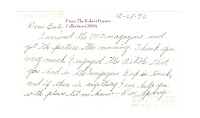 12-28-76
From The Robert Bowser
Collection (2009)
Dear Bob:
I received the VFC magazine and
got the picture this morning. Thank you
very much I enjoyed the Article that
you had in the magazine keep in touch,
and if there is anything I can help you
with please let me know —